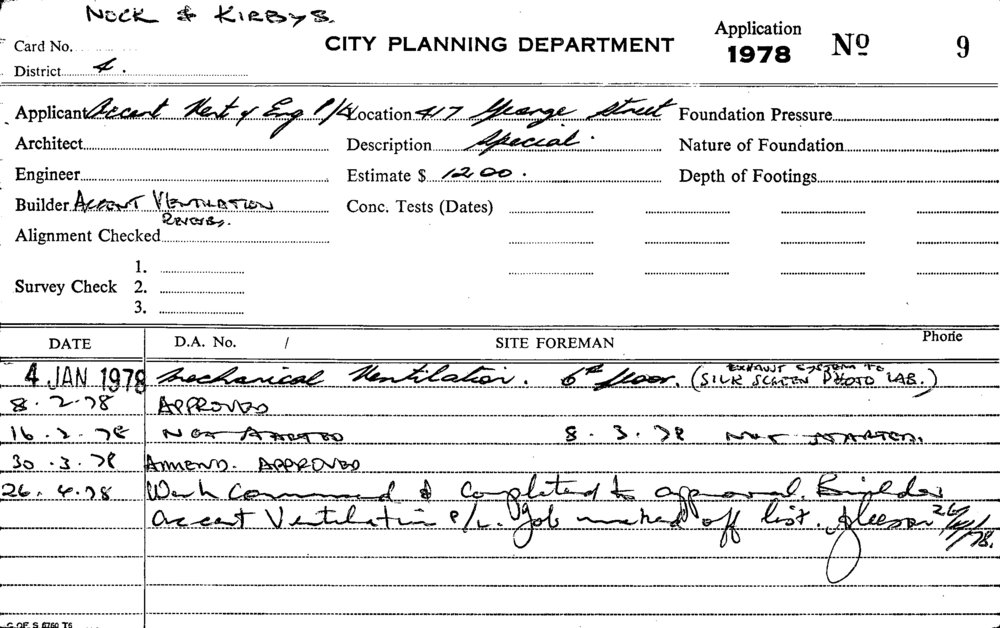 NOCK & KIRBYS.
Card No.
CITY PLANNING DEPARTMENT
Application 1978 Nº 9
District 4.
Applicant Accent Vent & Eng P/L Location 417 George Street Foundation Pressure
Architect Description Special. Nature of Foundation
Engineer Estimate $ 1200. Depth of Footings
Builder ACCENT VENTILATION Conc. Tests (Dates)
Alignment Checked
1.
Survey Check 2.
3.
DATE D.A. No. / SITE FOREMAN Phone
4 JAN 1978 Mechanical Ventilation. 6th floor. (EXHAUST SYSTEM TO SILK SCREEN PHOTO LAB.)
8.2.78 APPROVED
16.2.78 NOT STARTED 8.3.78 NOT STARTED.
30.3.78 AMEND. APPROVED
26.4.78 Work Commenced & Completed to approval. Builder
Accent Ventilation P/L. Job marked off list. 26/4/78.
C OF S 6760 T6